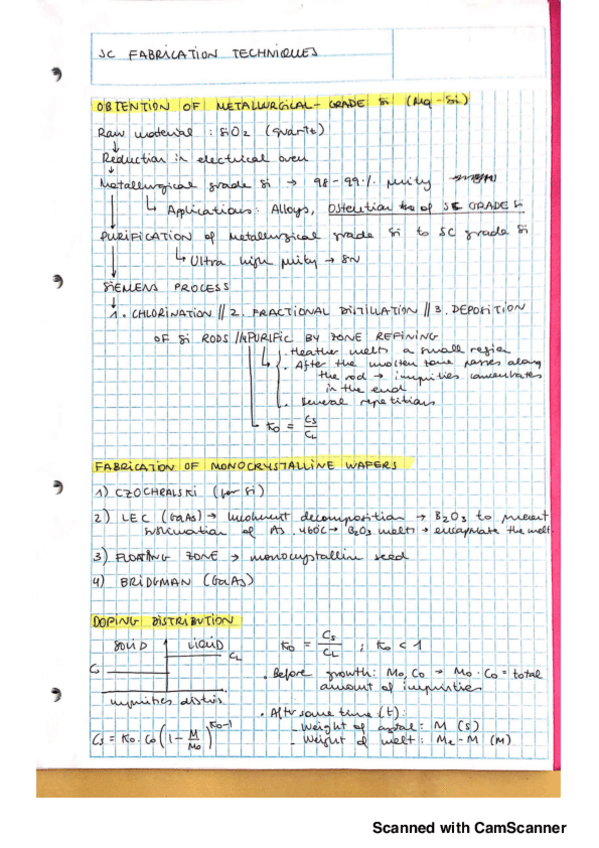 SC FABRICATION TECHNIQUES
OBTENTION OF METALLURGICAL-GRADE Si (Mg-Si)
Raw material : SiO2 (quartz)
↓
Reduction in electrical oven
↓
Metallurgical grade Si → 98-99% purity
↳ Applications: Alloys, Obtention of SC GRADE Si
PURIFICATION of metallurgical grade Si to SC grade Si
↳ Ultra high purity → 8N
SIEMENS PROCESS
↓
1. CHLORINATION // 2. FRACTIONAL DISTILLATION // 3. DEPOSITION
OF Si RODS // 4 PURIFIC BY ZONE REFINING
. Heather melts a small region
. After the molten zone passes along
the rod → impurities concentrates
in the end
. Several repetitions
K0 = CS/CL
FABRICATION OF MONOCRYSTALLINE WAFERS
1) CZOCHRALSKI (for Si)
2) LEC (GaAs) → Incoherent decomposition → B2O3 to prevent
sublimation of As. 460°C → B2O3 melts → encapsulate the melt.
3) FLOATING ZONE → monocrystallin seed
4) BRIDGMAN (GaAs)
DOPING DISTRIBUTION
SOLID LIQUID
CL
CS
impurities distrib.
K0 = CS/CL ; K0 < 1
. Before growth: M0, C0 → M0 · C0 = total
amount of impurities
. After some time (t):
- Weight of crystal: M (S)
- Weight of melt: M0 - M (M)
CS = K0 · C0 (1 - M/M0)^(K0-1)
Scanned with CamScanner